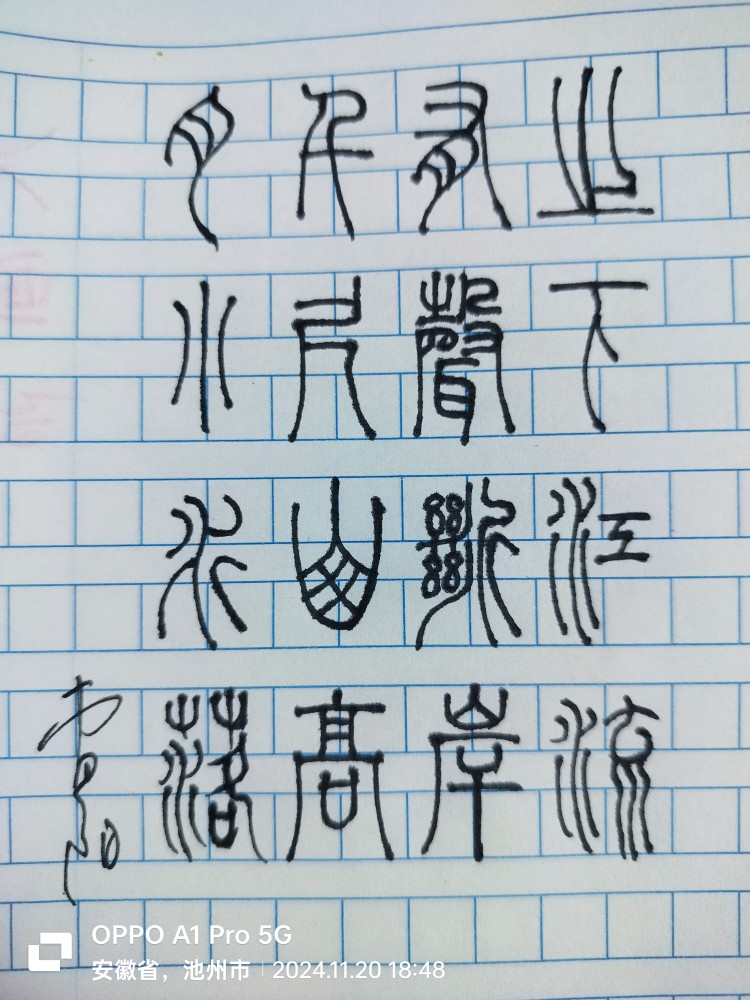 之下江流
有聲斷岸
千尺山高
月小水落
OPPO A1 Pro 5G
安徽省，池州市 | 2024.11.20 18:48